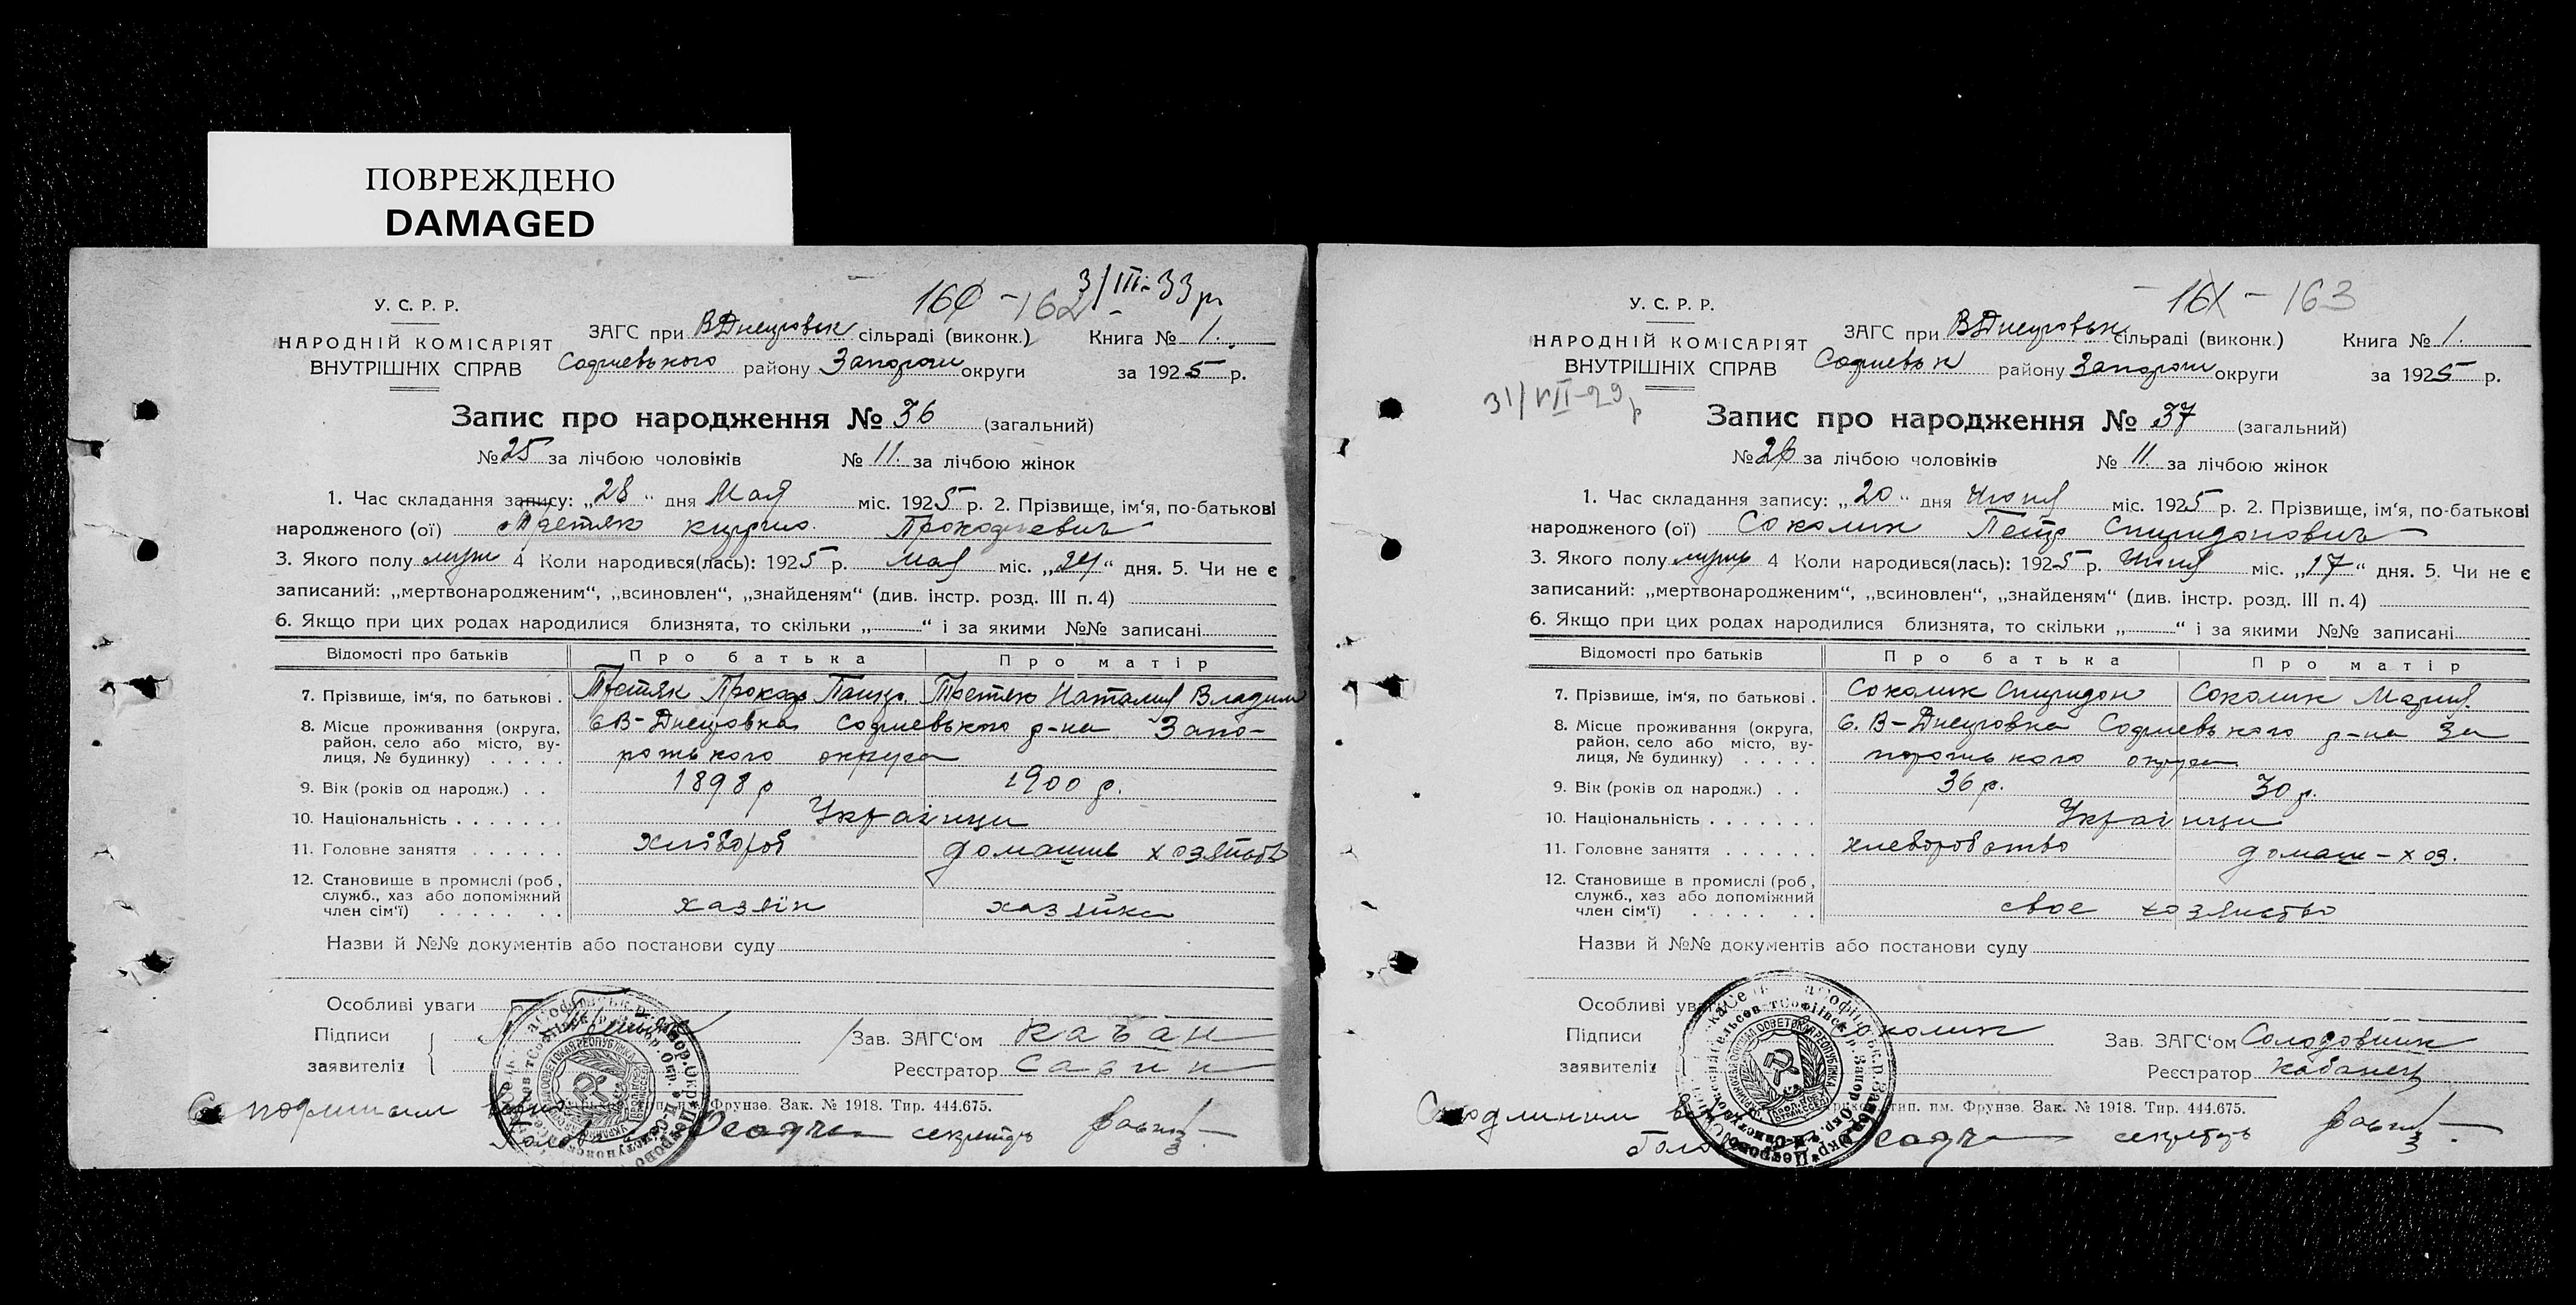 ПОВРЕЖДЕНО
DAMAGED
160 - 162 3/III-33 р.
У. С. Р. Р.
НАРОДНІЙ КОМІСАРІЯТ
ВНУТРІШНІХ СПРАВ
ЗАГС при ВДнепровск. сільраді (виконк.)
Софиевького району Запорож округи
Книга № 1.
за 1925 р.
Запис про народження № 36 (загальний)
№ 25 за лічбою чоловіків № 11. за лічбою жінок
1. Час складання запису: „28“ дня Мая міс. 1925 р. 2. Прізвище, ім‘я, по-батькові
народженого (ої) Третяк Прокофиевич
3. Якого полу муж 4 Коли народився(лась): 1925 р. Мая міс. „24“ дня. 5. Чи не є
записаний: „мертвонародженим“, „всиновлен“, „знайденям“ (див. інстр. розд. III п. 4)
6. Якщо при цих родах народилися близнята, то скільки „ “ і за якими №№ записані
Відомості про батьків Про батька Про матір
7. Прізвище, ім‘я, по батькові . Третяк Прокоф Третяк Наталия Владим
8. Місце проживання (округа, район, село або місто, вулиця, № будинку) с В-Днепровка Софиевького р-на Запо-
рожького округа
9. Вік (років од народж.) . . 1898 р 1900 р.
10. Національність . . . . . . . Українци
11. Головне заняття . . . . . . хлібороб домашне хозяйство
12. Становище в промислі (роб., служб., хаз або допоміжний член сім‘ї) . . . . . . . . хазяїн хазяйка
Назви й №№ документів або постанови суду
Особливі уваги
Підписи
заявителів
Зав. ЗАГС‘ом Кабан
Реєстратор Савин
Фрунзе. Зак. № 1918. Тир. 444.675.
С подлиним
Осадчи секретарь
16X - 163
У. С. Р. Р.
НАРОДНІЙ КОМІСАРІЯТ
ВНУТРІШНІХ СПРАВ
31/VII-29 р
ЗАГС при ВДнепровск сільраді (виконк.)
Софиевьк району Запорож округи
Книга № 1.
за 1925 р.
Запис про народження № 37 (загальний)
№ 26 за лічбою чоловіків № 11. за лічбою жінок
1. Час складання запису: „20“ дня Июня міс. 1925 р. 2. Прізвище, ім‘я, по-батькові
народженого (ої) Соколик Петр Спиридонович
3. Якого полу мужь 4 Коли народився(лась): 1925 р. Июня міс. „17“ дня. 5. Чи не є
записаний: „мертвонародженим“, „всиновлен“, „знайденям“ (див. інстр. розд. III п. 4)
6. Якщо при цих родах народилися близнята, то скільки „ “ і за якими №№ записані
Відомості про батьків Про батька Про матір
7. Прізвище, ім‘я, по батькові . Соколик Спиридон Соколик Мария.
8. Місце проживання (округа, район, село або місто, вулиця, № будинку) с. В-Днепровка Софиевького р-на За
порожького округа
9. Вік (років од народж.) . . 36 р. 30 р.
10. Національність . . . . . . . Українци
11. Головне заняття . . . . . . хлеборобство домаш-хоз.
12. Становище в промислі (роб., служб., хаз або допоміжний член сім‘ї) . . . . . . . . свое хозяиство
Назви й №№ документів або постанови суду
Особливі уваги
Підписи
заявителів
Соколик
Зав. ЗАГС‘ом Солодовник
Реєстратор Кабанец
тип. им. Фрунзе. Зак. № 1918. Тир. 444.675.
С подлиним
Осадчи секретарь